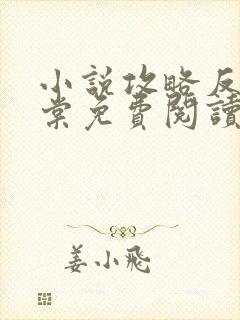 小說攻略反
棠免費閱讀
姜小飛